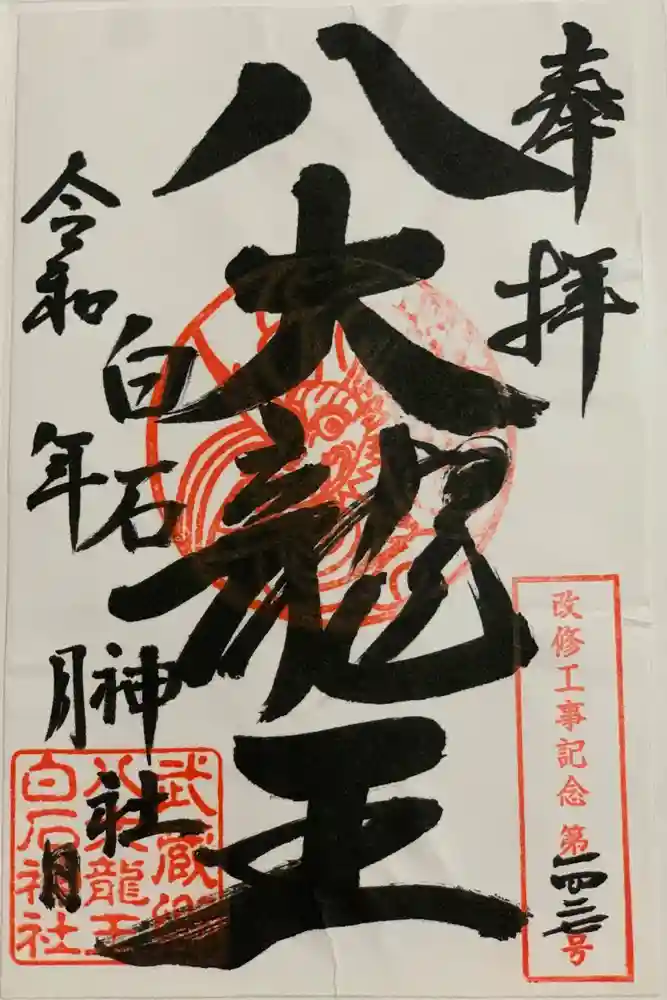 奉拝
八大龍王
白石神社
令和 年 月 日
改修工事記念 第 号
武蔵
八大龍王
白石神社